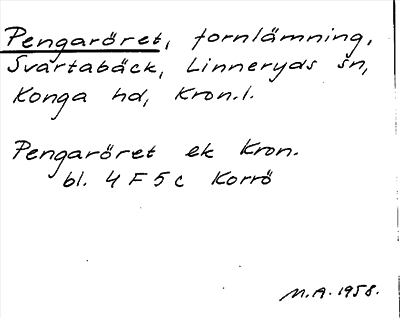 Pengaröret, fornlämning,
Svartabäck, Linneryds sn,
Konga hd, Kron.l.
Pengaröret ek Kron.
bl. 4 F 5 c Korrö
M.A. 1958.